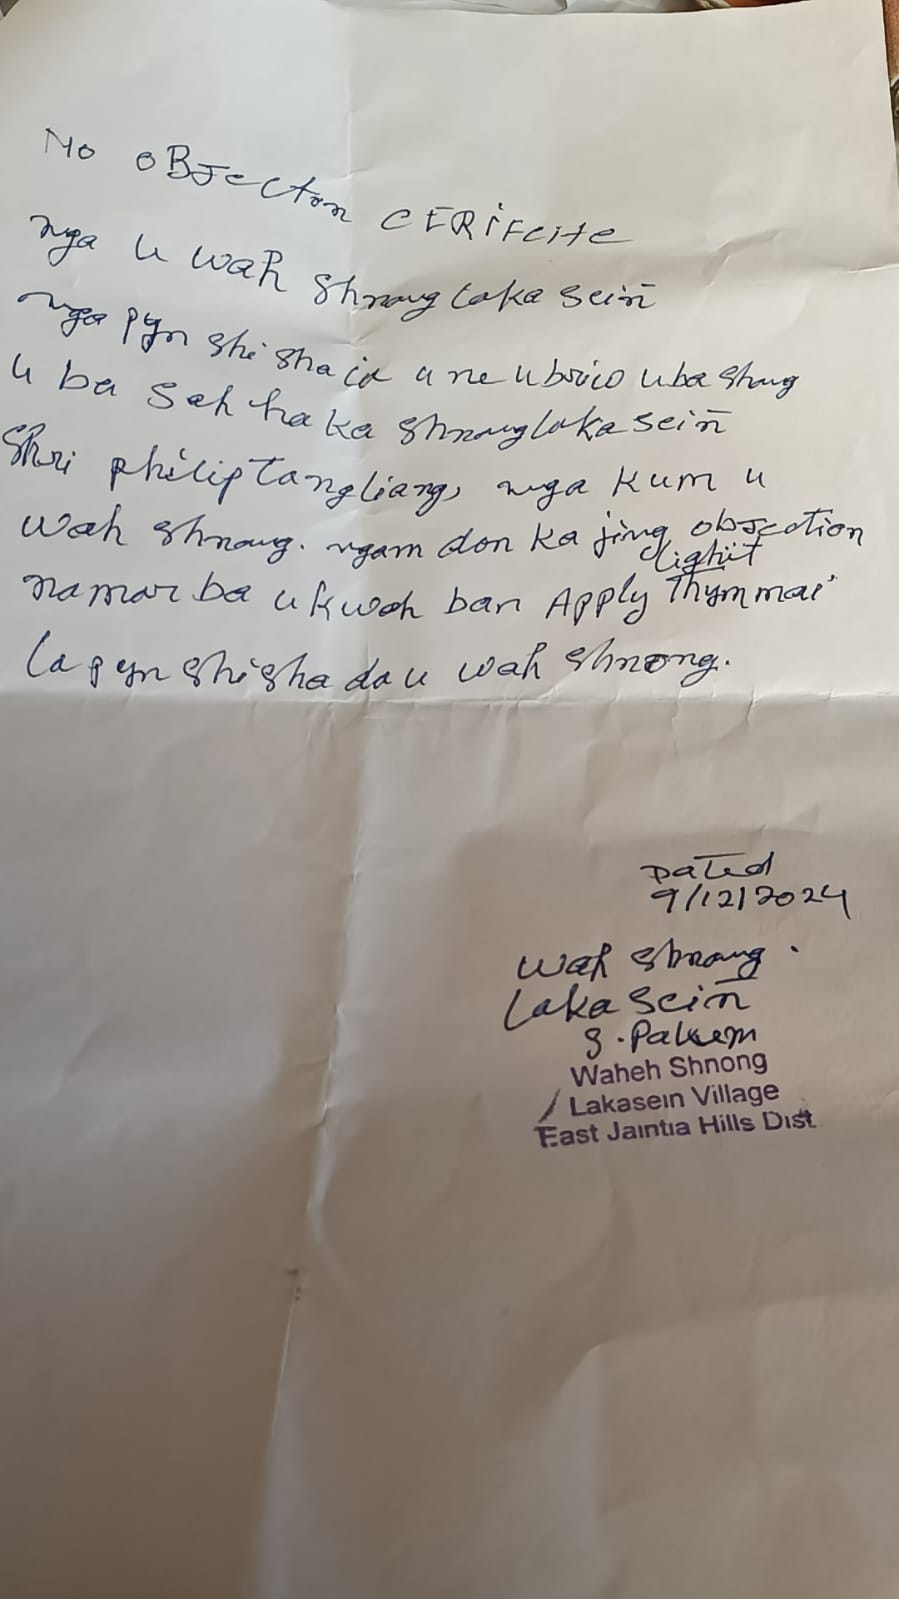 No OBJecton CERiFcite
nga u wah Shnong Laka Sein
nga pyn shi sha ia u ne u briew uba Shong
u ba Sah ha ka Shnong laka sein
Shri philip Tangliang, nga kum u
wah Shnong. ngam don ka jing objection
light
namar ba u kwah ban Apply Thymmai
la pyn shisha da u wah Shnong.
Dated
9/12/2024
Wah Shnong.
Laka Sein
S. Pakem
Waheh Shnong
Lakasein Village
East Jaintia Hills Dist